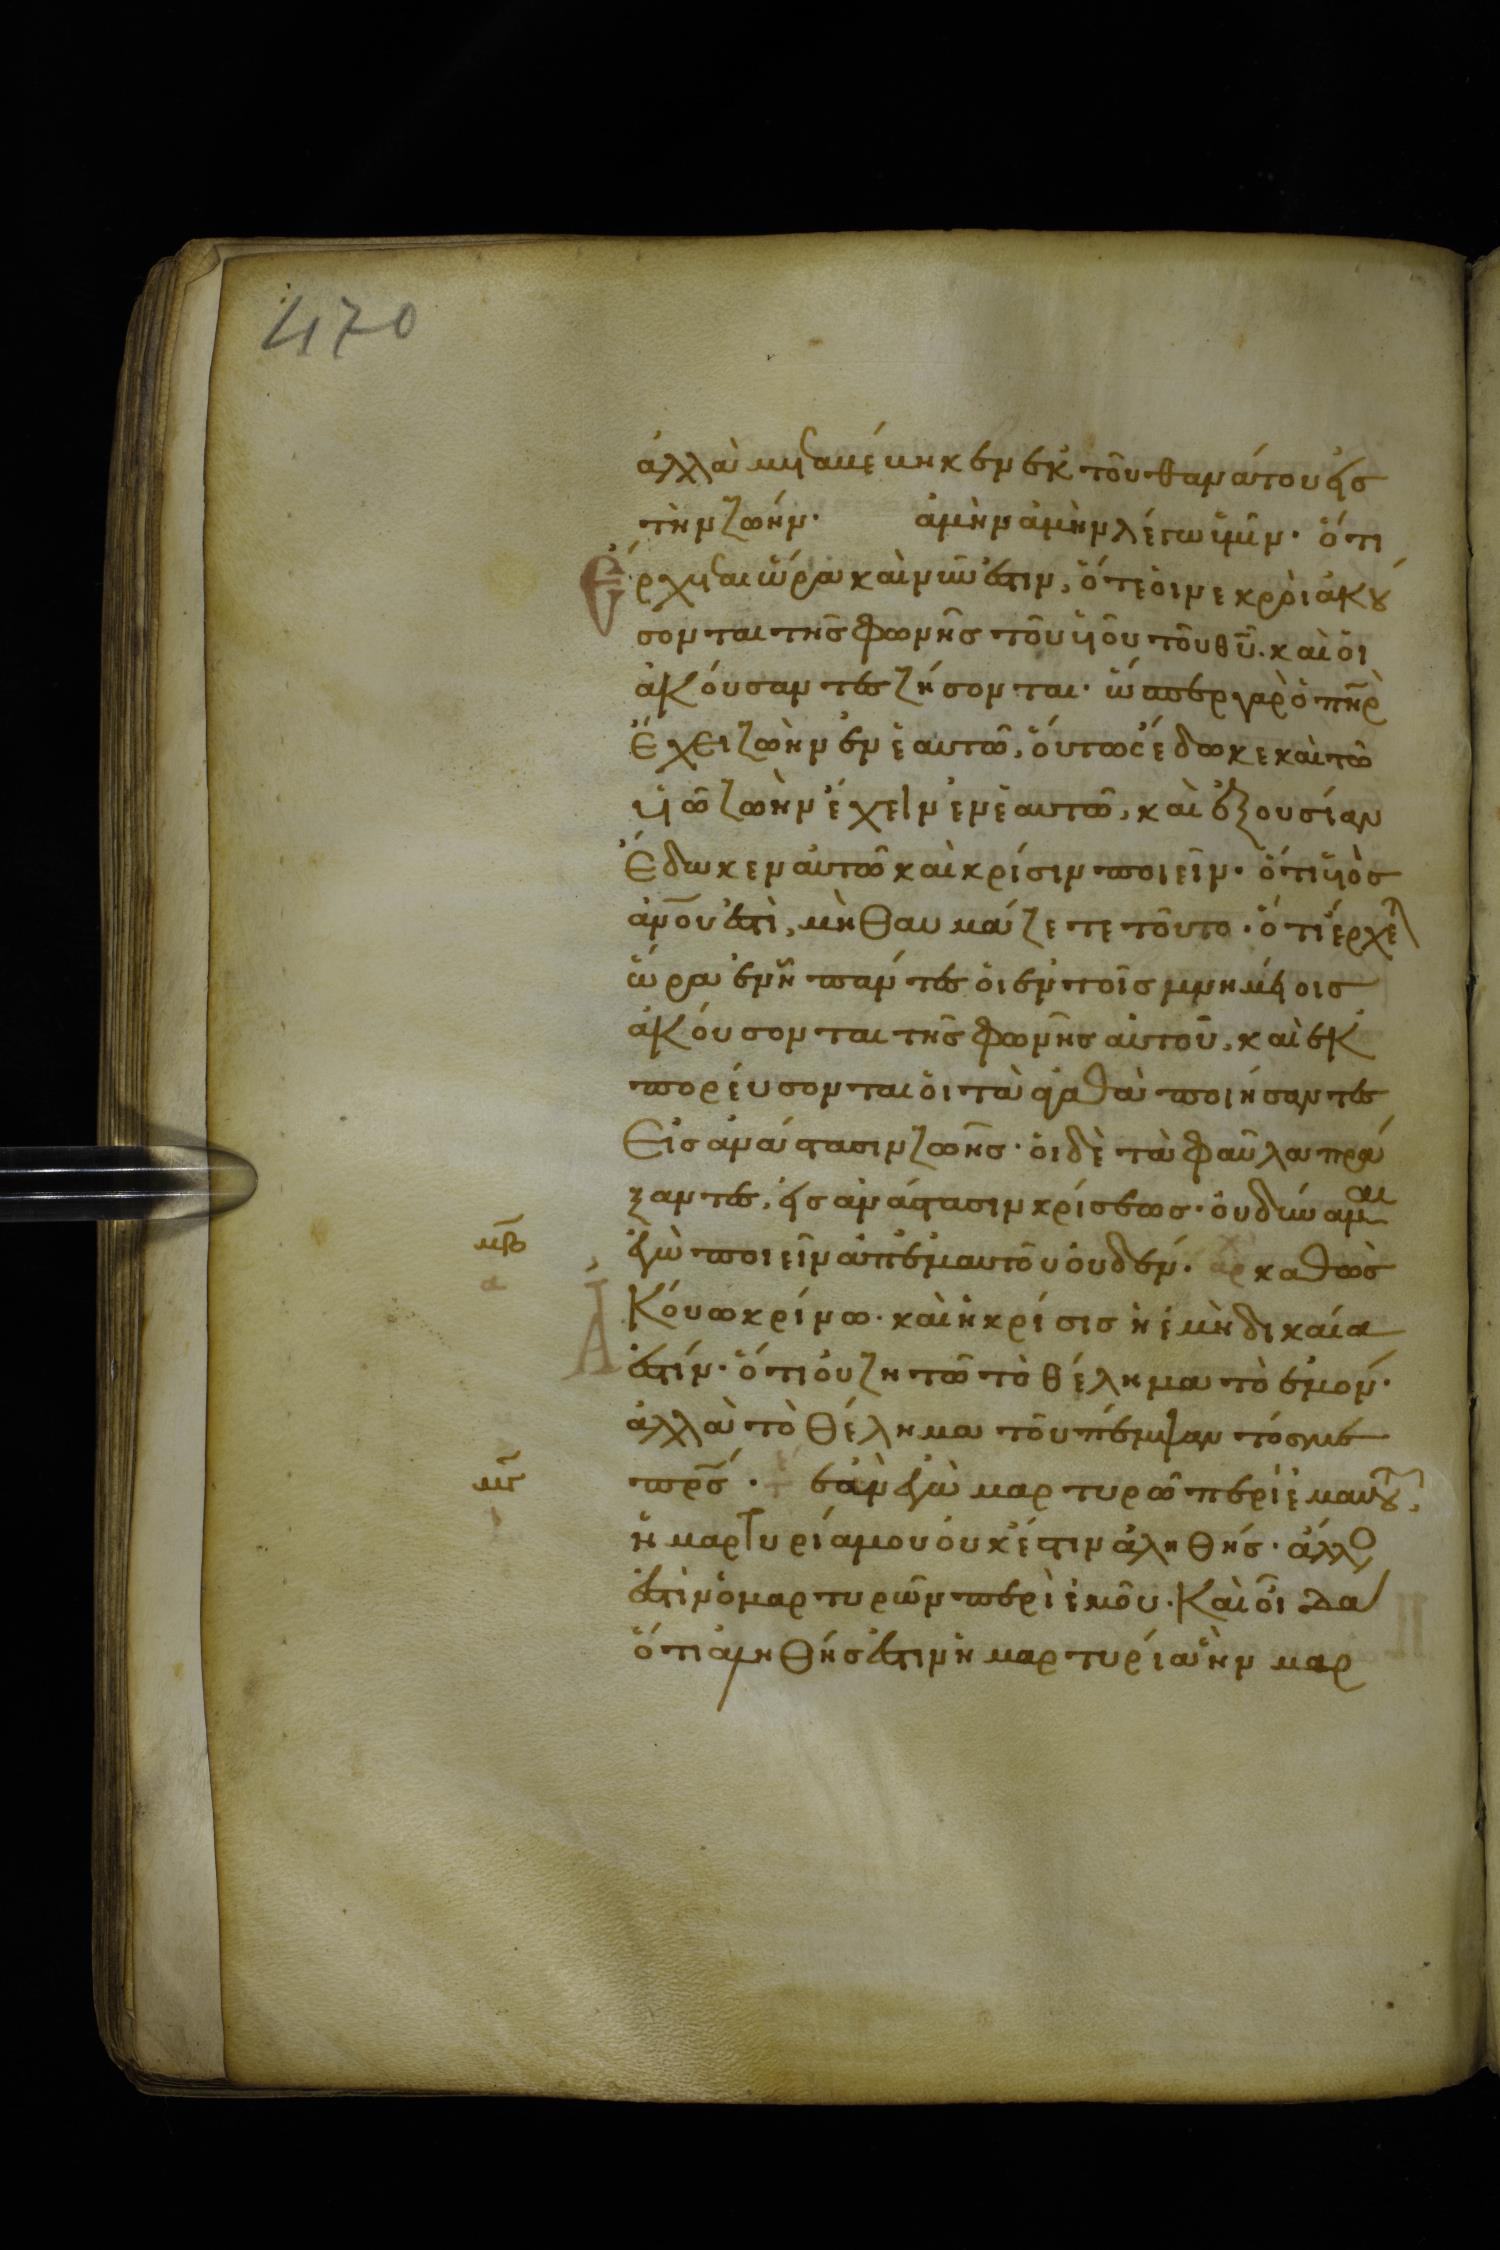 470
ἀλλὰ μεταβέβηκεν ἐκ τοῦ θανάτου εἰς
τὴν ζωήν. ἀμὴν ἀμὴν λέγω ὑμῖν. ὅτι
ἔρχεται ὥρα καὶ νῦν ἐστιν, ὅτε οἱ νεκροὶ ἀκού
σονται τῆς φωνῆς τοῦ υἱοῦ τοῦ θῦ. καὶ οἱ
ἀκούσαντες ζήσονται. ὥσπερ γὰρ ὁ πηρ
ἔχει ζωὴν ἐν ἑαυτῶ, οὕτως ἔδωκε καὶ τῶ
υἱῶ ζωὴν ἔχειν ἐν ἑαυτῶ, καὶ ἐξουσίαν
ἔδωκεν αὐτῶ καὶ κρίσιν ποιεῖν. ὅτι υἱὸς
ἀνου ἐστὶ, μὴ θαυμάζετε τοῦτο. ὅτι ἔρχεται
ὥρα ἐν ἧ πάντες οἱ ἐν τοῖς μνημείοις
ἀκούσονται τῆς φωνῆς αὐτοῦ, καὶ ἐκ
πορεύσονται οἱ τὰ ἀγαθὰ ποιήσαντες
εἰς ἀνάστασιν ζωῆς. οἱ δὲ τὰ φαῦλα πρά
ξαντες, εἰς ἀνάστασιν κρίσεως. οὐ δύναμαι
μβ ἐγὼ ποιεῖν ἀπ' ἐμαυτοῦ οὐδέν. καθὼς
α
ἀκούω κρίνω. καὶ ἡ κρίσις ἡ ἐμὴ δικαία
ἐστίν. ὅτι οὐ ζητῶ τὸ θέλημα τὸ ἐμόν.
ἀλλὰ τὸ θέλημα τοῦ πέμψαντός με
μγ πρς. ἐὰν ἐγὼ μαρτυρῶ περὶ ἐμαυτοῦ,
ἡ μαρτυρία μου οὐκ ἔστιν ἀληθής. ἄλλος
ἐστὶν ὁ μαρτυρῶν περὶ ἐμοῦ. καὶ οἶδα
ὅτι ἀληθής ἐστιν ἡ μαρτυρία ἣν μαρ